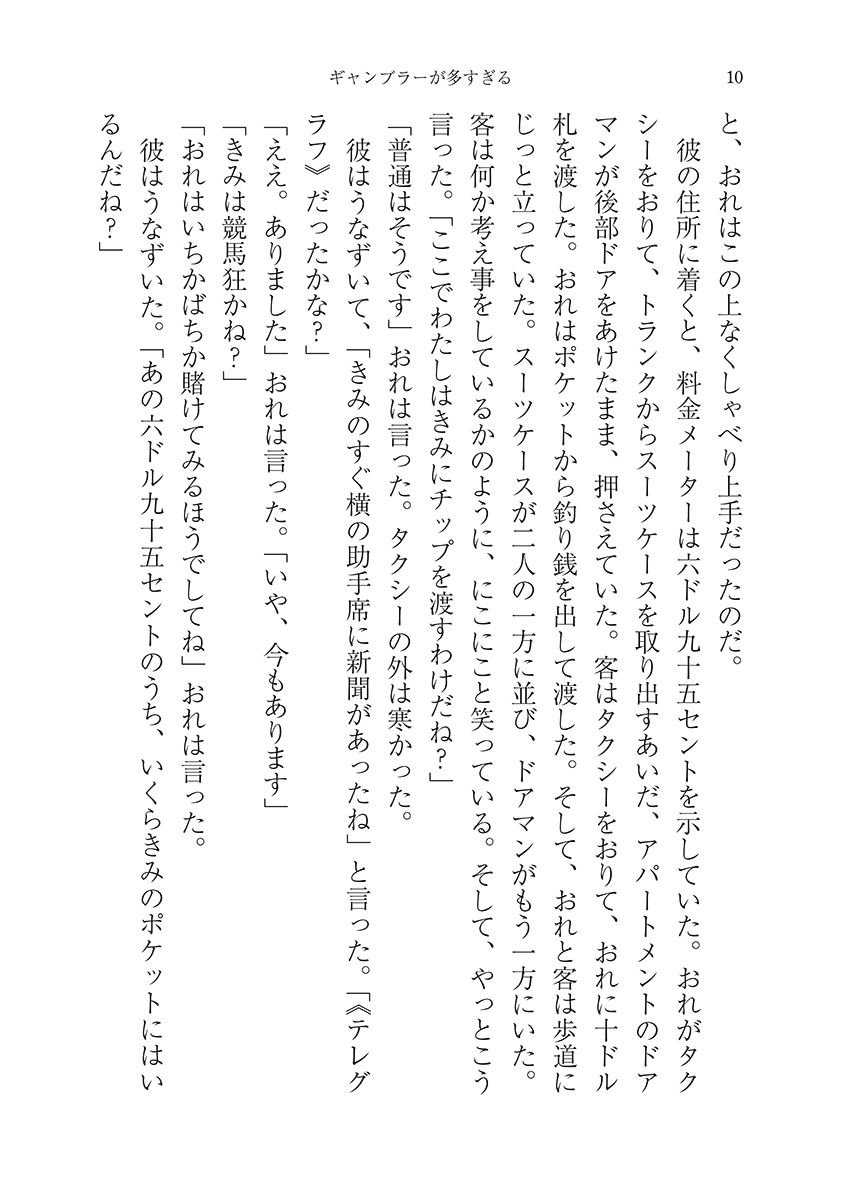 ギャンブラーが多すぎる
10
と、おれはこの上なくしゃべり上手だったのだ。
　彼の住所に着くと、料金メーターは六ドル九十五セントを示していた。おれがタク
シーをおりて、トランクからスーツケースを取り出すあいだ、アパートメントのドア
マンが後部ドアをあけたまま、押さえていた。客はタクシーをおりて、おれに十ドル
札を渡した。おれはポケットから釣り銭を出して渡した。そして、おれと客は歩道に
じっと立っていた。スーツケースが二人の一方に並び、ドアマンがもう一方にいた。
客は何か考え事をしているかのように、にこにこと笑っている。そして、やっとこう
言った。「ここでわたしはきみにチップを渡すわけだね？」
「普通はそうです」おれは言った。タクシーの外は寒かった。
　彼はうなずいて、「きみのすぐ横の助手席に新聞があったね」と言った。「《テレグ
ラフ》だったかな？」
「ええ。ありました」おれは言った。「いや、今もあります」
「きみは競馬狂かね？」
「おれはいちかばちか賭けてみるほうでしてね」おれは言った。
　彼はうなずいた。「あの六ドル九十五セントのうち、いくらきみのポケットにはい
るんだね？」